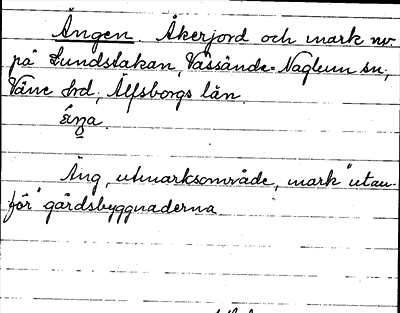 Ängen. Åkerjord och mark nv.
på Lundstakan, Vassände-Naglum sn,
Väne hd, Älfsborgs län.
Äng, utmarksområde, mark "utan-
för" gårdsbyggnaderna